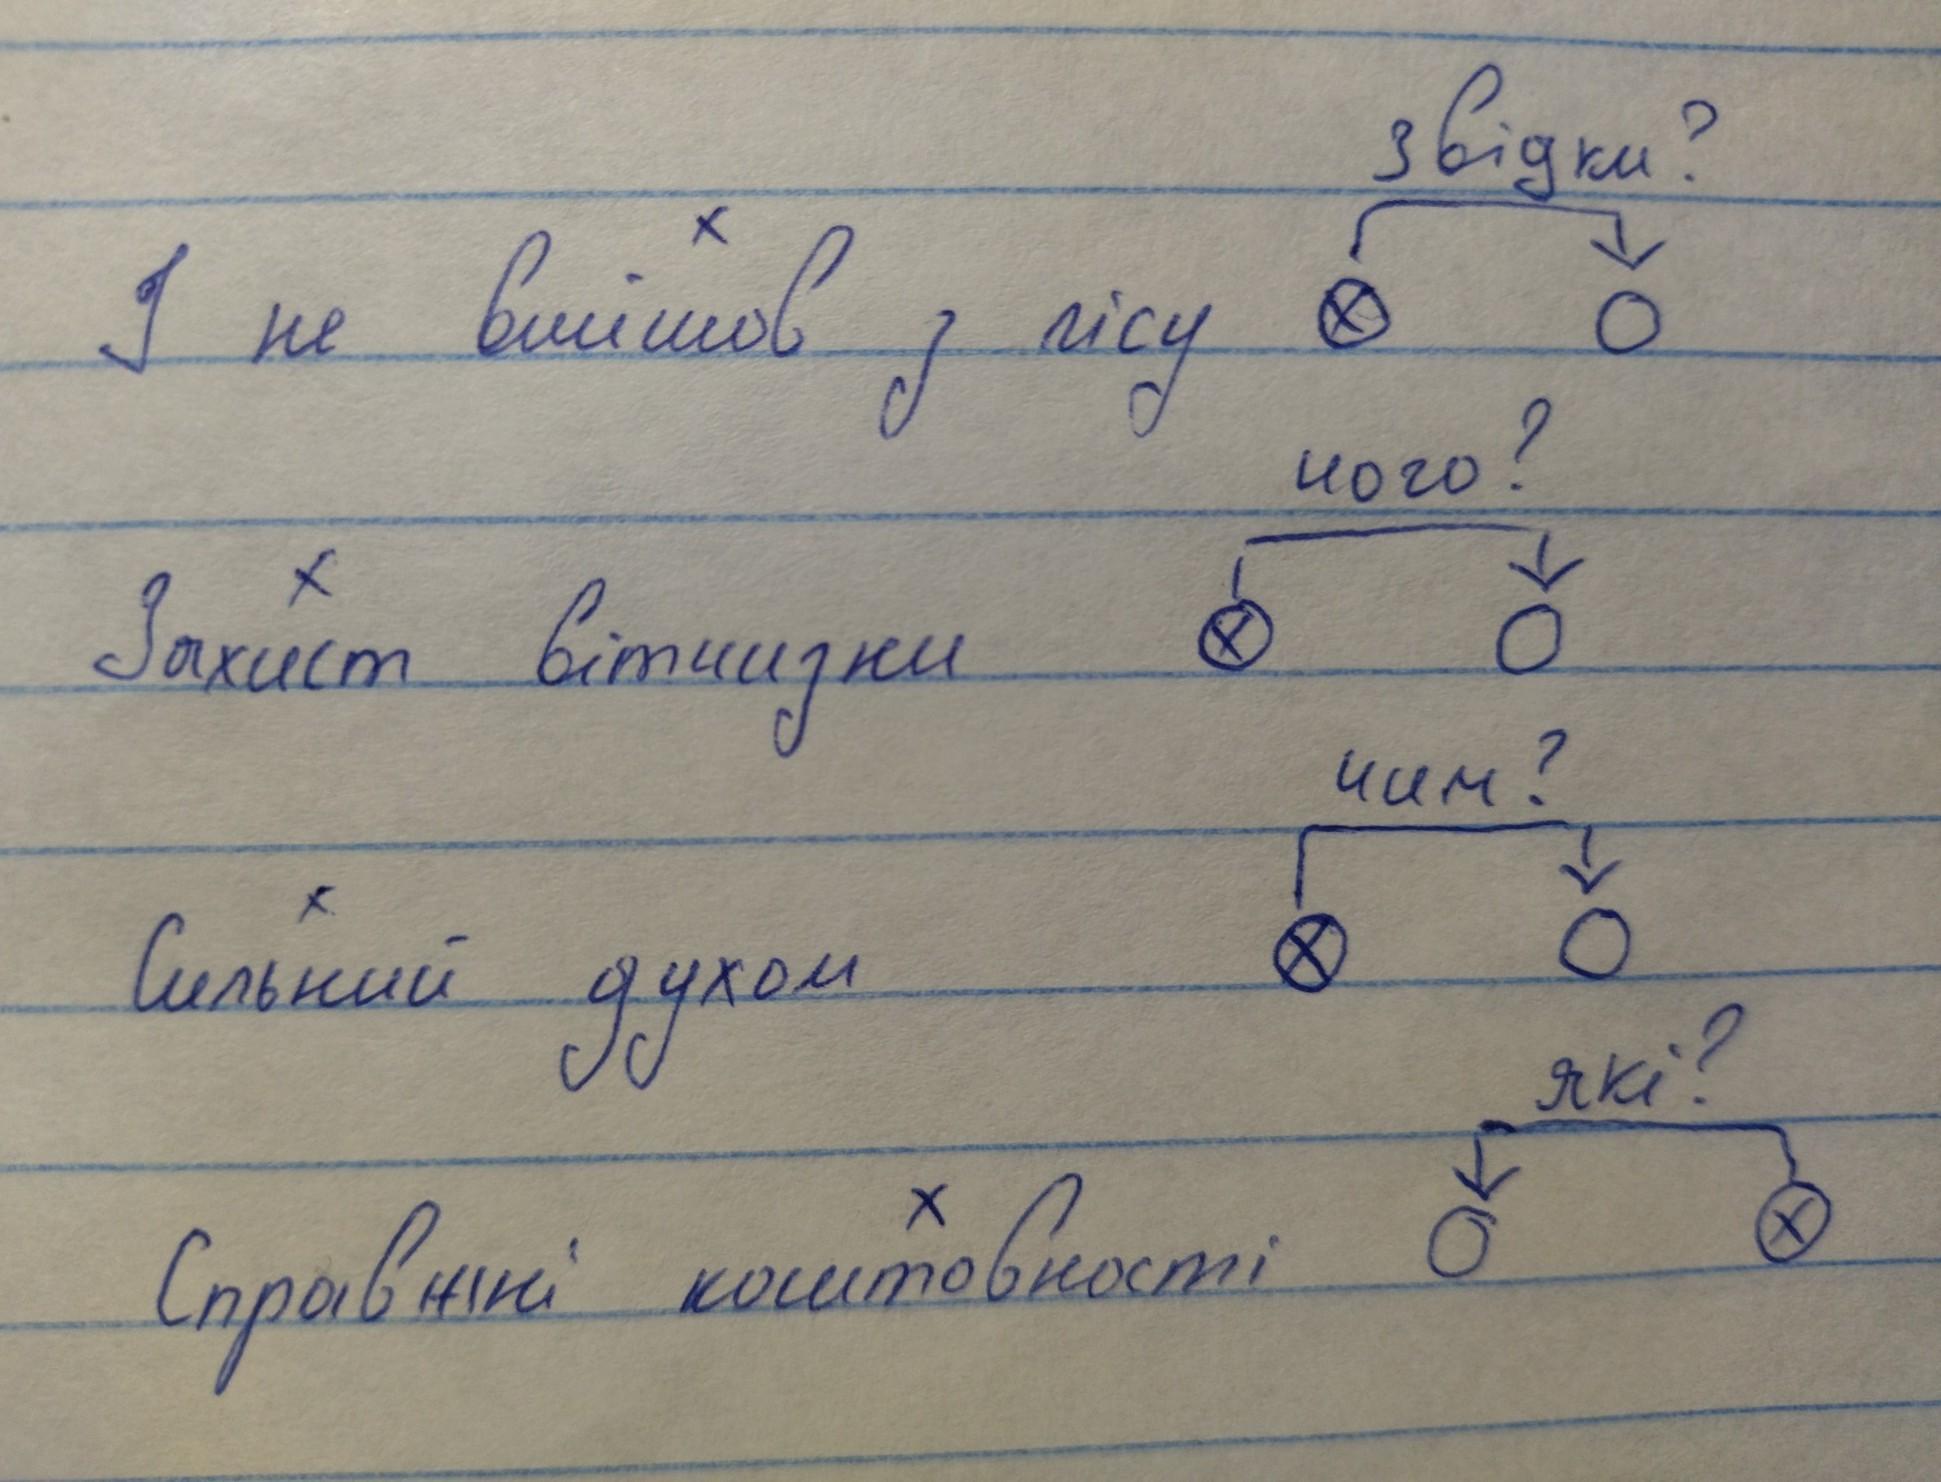 звідки?
І не вийшов з лісу
чого?
Захист вітчизни
чим?
Сильний духом
які?
Справжні коштовності